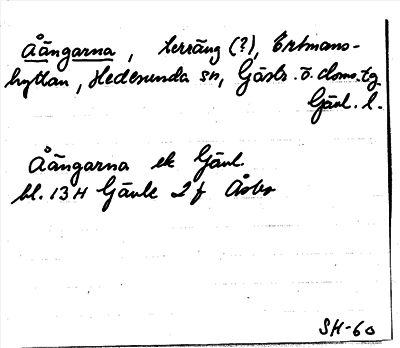 Åängarna, terräng (?), Ertmans-
hyttan, Hedesunda sn, Gästr. ö. doms. tg
Gävl. l.
Åängarna ek Gävl.
bl. 13 H Gävle 2 f Åsbo
SH-60